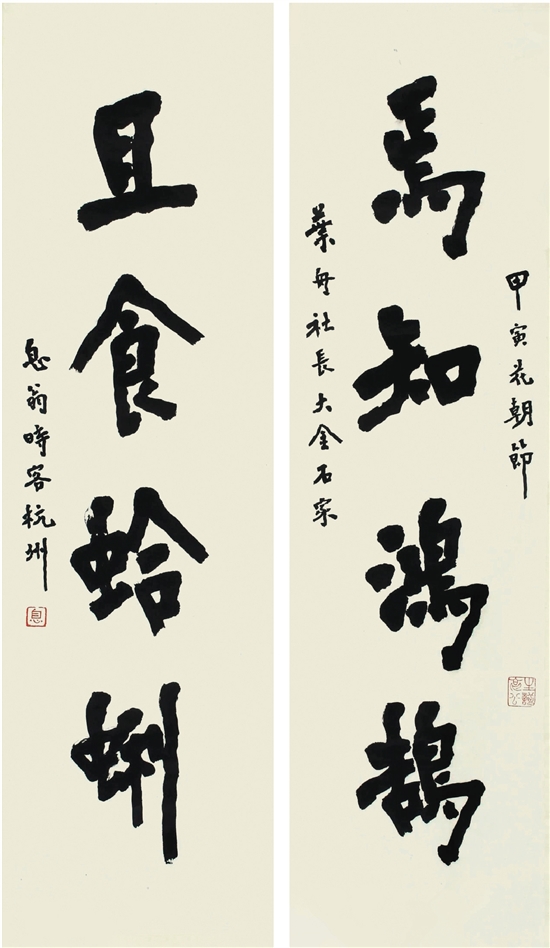 甲寅花朝節
焉知鴻鵠
葉舟社長大金石家
且食蛤蜊
息翁時客杭州
息